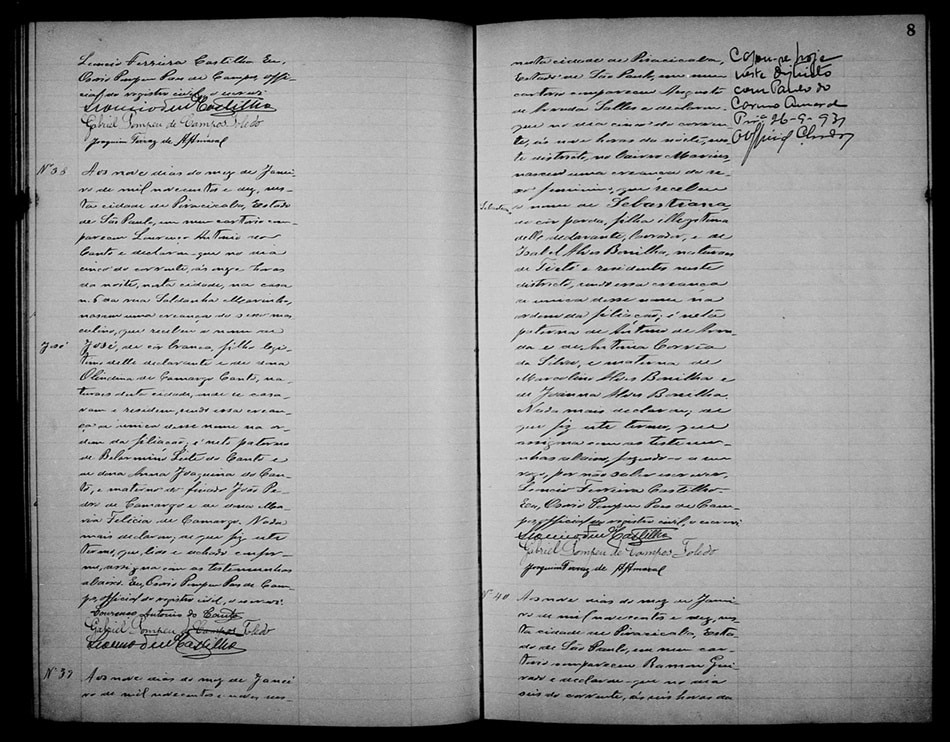 Leoncio Ferreira Castilho. Eu,
Osorio Pompeu Paes de Campos, offi-
cial do registro civil, o escrevi.
Gabriel Pompeu de Campos Toledo
Joaquim Ferraz de A. Amaral
Nº 38
Aos nove dias do mez de Janei-
ro de mil novecentos e dez, nes-
ta cidade de Piracicaba, Estado
de São Paulo, em meu cartorio com-
pareceu Lourenço Antonio do
Canto e declarou que no dia
cinco do corrente, ás onze horas
da noite, nesta cidade, na casa
n. 60 da rua Saldanha Marinho,
nasceu uma creança do sexo mas-
culino, que recebeu o nome de
José
José, de côr branca, filho legi-
timo delle declarante e de dona
Olindina de Camargo Canto, na-
turaes desta cidade, onde se casa-
ram e residem, sendo essa crean-
ça a unica desse nome na or-
dem da filiação; é neto paterno
de Belarmino Leite do Canto e
de dona Anna Joaquina do Can-
to, e materno do finado João Pe-
dro de Camargo e de dona Ma-
ria Felicia de Camargo. Nada
mais declarou; de que fiz este
termo, que, lido e achado confor-
me, assigna com as testemunhas
abaixo. Eu, Osorio Pompeu Paes de Cam-
pos, official do registro civil, o escrevi.
Lourenço Antonio do Canto
Gabriel Pompeu de Campos Toledo
Nº 39
Aos nove dias do mez de Janei-
ro de mil novecentos e dez, nes-
8
nesta cidade de Piracicaba,
Estado de São Paulo, em meu
cartorio compareceu Augusto
de Arruda Salles e declarou
que no dia cinco do corren-
te, ás nove horas da noite, nes-
te districto, no bairro
nasceu uma creança do se-
xo feminino, que recebeu
Sebastiana
o nome de Sebastiana
de côr parda, filha illegitima
delle declarante, lavrador, e de
Isabel Alves Bonilha, naturaes
de Tietê e residentes neste
districto, sendo essa creança
a unica desse nome na
ordem da filiação; é neta
paterna de Antonio de Arru-
da e de Antonia Corrêa
da Silva, e materna de
Marcolino Alves Bonilha e
de Joanna Alves Bonilha.
Nada mais declarou; de
que fiz este termo, que
assigna com as testemu-
nhas abaixo, fazendo-o a seu
rogo, por não saber escrever,
Leoncio Ferreira Castilho.
Eu, Osorio Pompeu Paes de Cam-
pos, official do registro civil, o escrevi.
Gabriel Pompeu de Campos Toledo
Joaquim Ferraz de A. Amaral
Nº 40
Aos nove dias do mez de Janei-
ro de mil novecentos e dez, nes-
ta cidade de Piracicaba, Esta-
do de São Paulo, em meu car-
torio compareceu Ramon
e declarou que no dia
seis do corrente, ás seis horas da
Casou-se hoje
neste districto
com Paulo do
Carmo
26-9-931
O Official